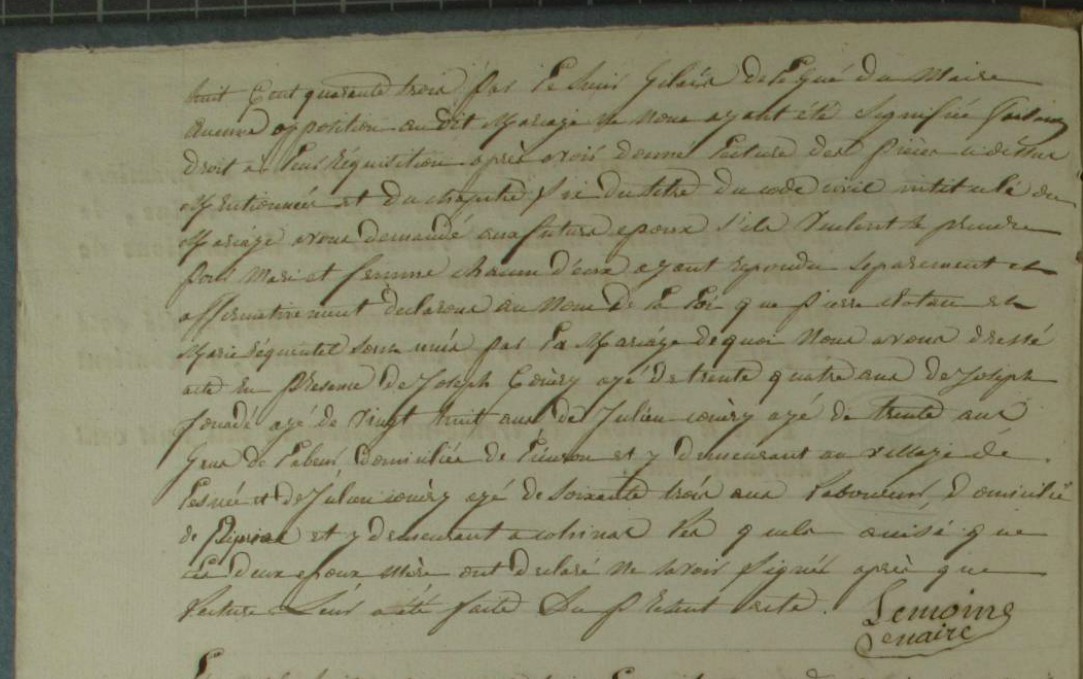 huit Cent quarante trois par Le Sieur délégué du Maire
Aucune opposition audit Mariage ne Nous ayant été Signifiée faisant
droit a Leur Réquisition après avoir donné Lecture des pièces ci dessus
Mentionnées et du chapitre du titre du code civil intitulé du
Mariage avons demandé aux futurs epoux s'ils Veulent se prendre
pour Mari et femme chacun d'eux ayant repondu Separement et
affirmativement declarons au Nom de La Loi que pierre et
Marie Séquentel Sont unis par Le Mariage de quoi Nous avons dressé
acte En presence de Joseph Couëry agé de trente quatre ans de Joseph
agé de Vingt huit ans de Julien couëry agé de trente ans
Gens de Labeur Domiciliés de et y demeurant au village de
et de Julien couëry agé de Soixante trois ans Laboureur Domicilié
de Pipriac et y demeurant a Les quels ainsi que
Les deux epoux ont declaré ne Savoir Signer après que
Lecture Leur a été faite Du present acte.
Lemoine
maire